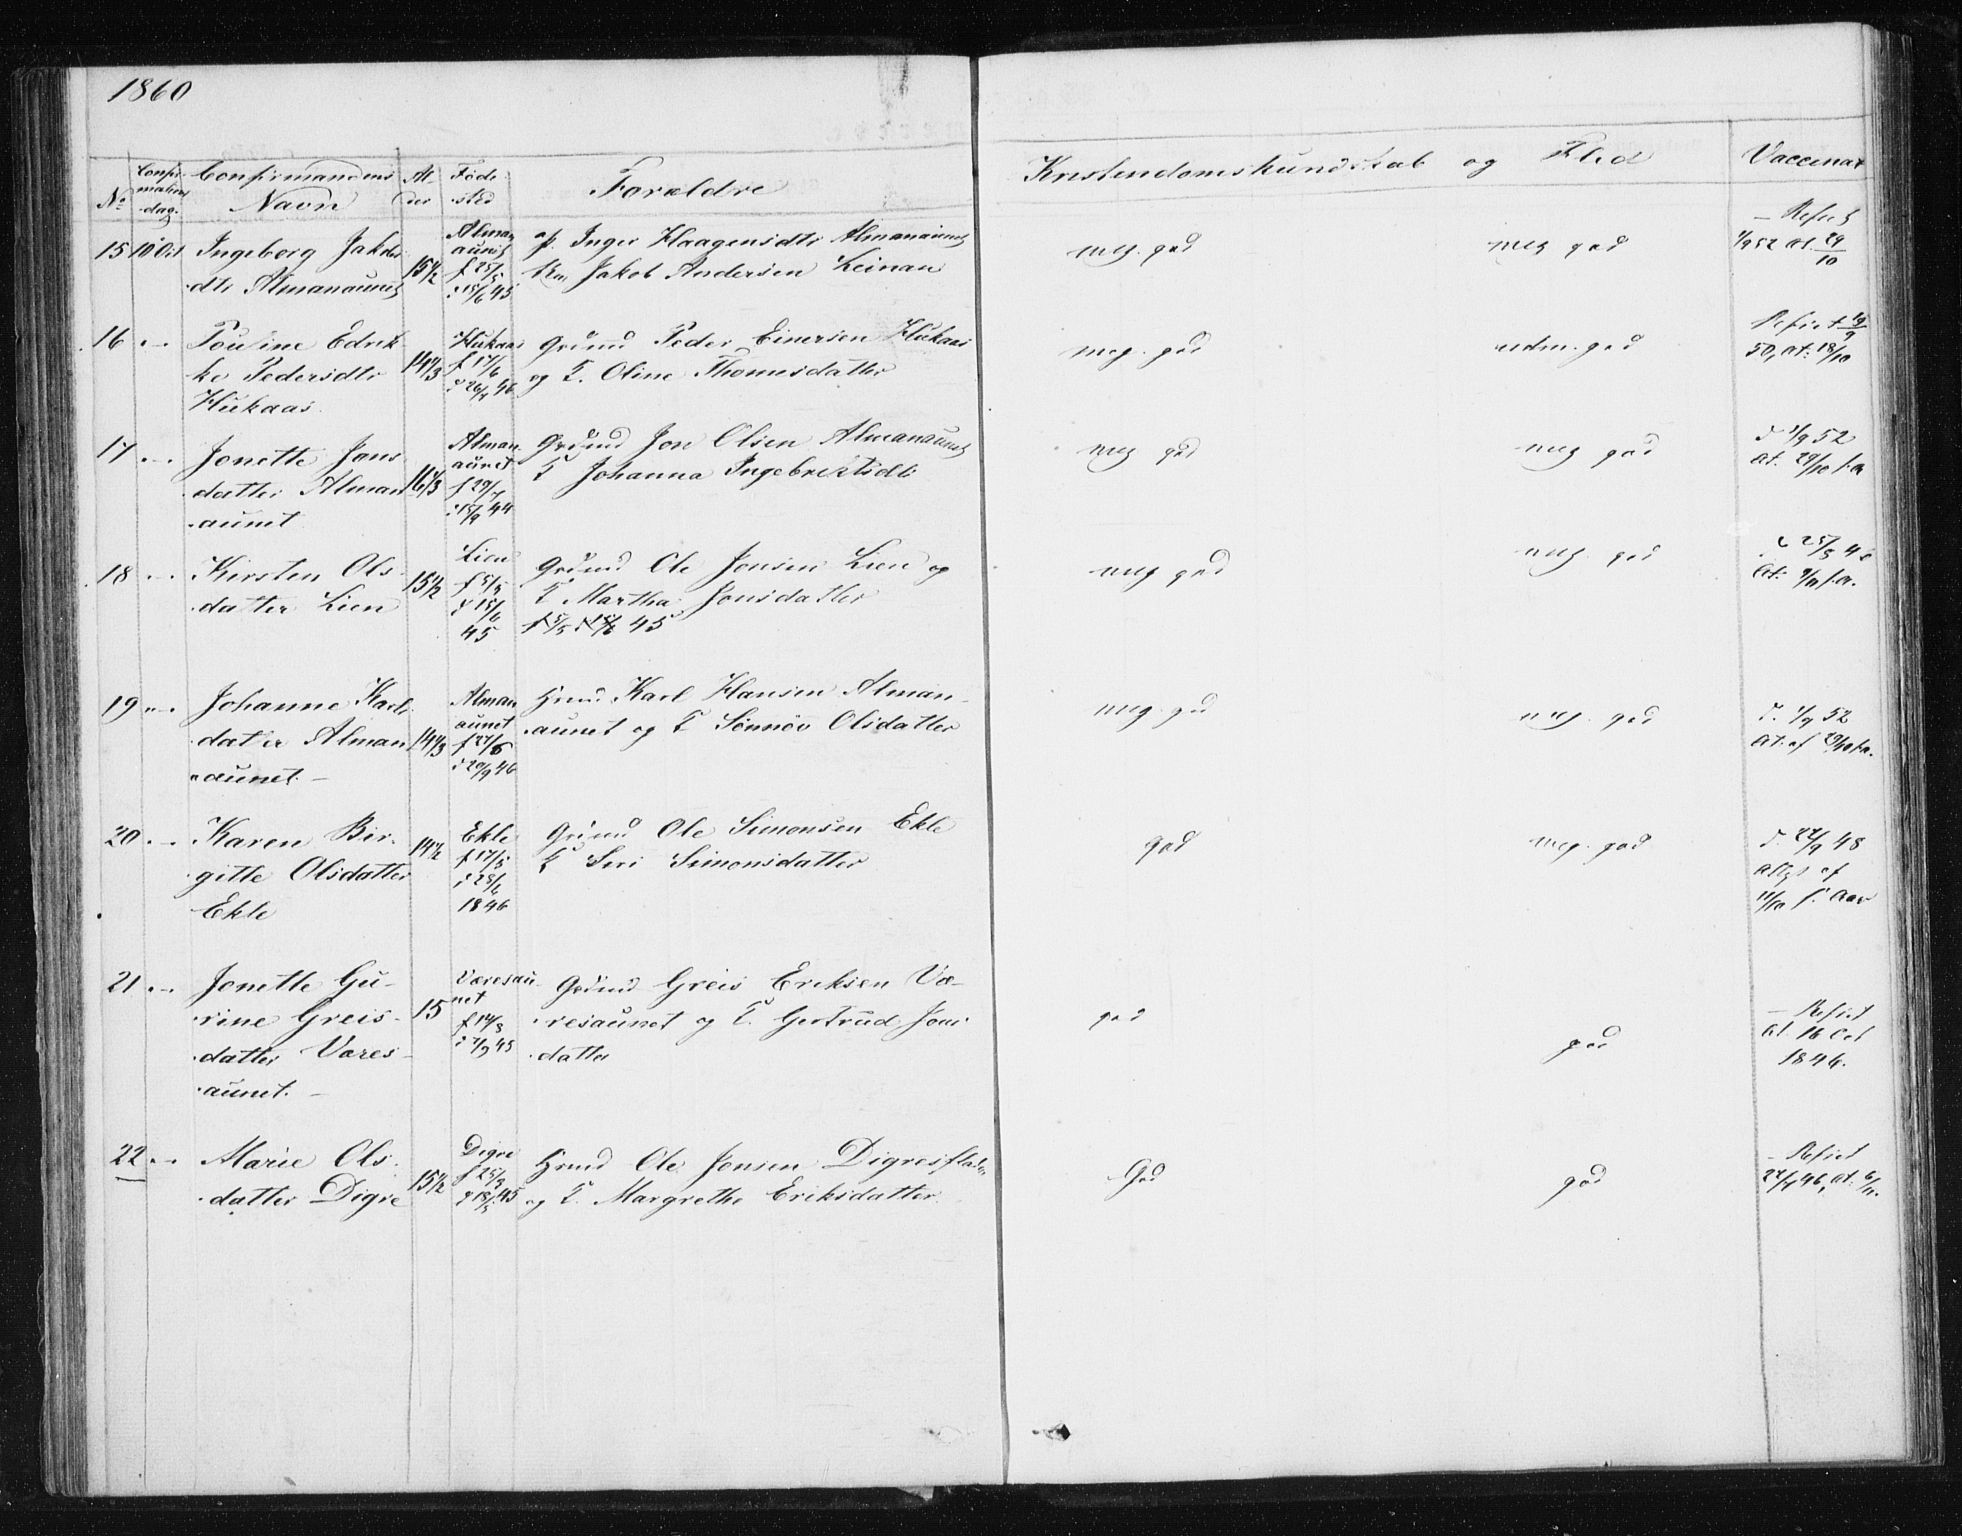 1860
No Confirmations dag. Confirmandens Navn Alder Fødested Forældre Kristendomskundskab og Flid Vaccinat
15 10 Oct Ingeborg Jakobs
dtr Almanaunet
15½
Alman
aunet
f 25/5
d 15/6 45
p. Inger Haagensdtr Almanaunet
Ka, Jakob Andersen Leinan
meg. god
meg god
– Refset
1/9 52 at 29/10
16 „ Pouline Edrik
ke Pedersdtr
Hukaas
14⅓
Hukaas
f 17/6
46
Grmd Peder Einersen Hukaas
og K. Oline Thomesdatter
meg. god
udm. god
Refset 19/9
50, at. 18/10
17 „ Jonette Jons
datter Alman
aunet
16⅓
Alman
aunet
f 29/7
d 15/9 44
Grdmd Jon Olsen Almanaunet
K Johanna Ingebrectsdtr
meg god
meg god
d 1/9 52
at. 29/10 f.a
18 „ Kirsten Ols
datter Lien
15½
Lien
f 5/5
d 15/6
45
Grdmd Ole Jonsen Lien og
K Martha Jonsdatter
f 5/5 d 15/6 45
meg god
meg. god
at. f.a.
19 „ Johanne Karls
datter Alman
aunet. –
14⅓
Alman
aunet
f 27/6
d 20/9 46
Hmd Karl Hansen Alman-
aunet og K Sønnøv Olsdatter
meg. god
meg. god
d. 1/9 52
at. af 29/10 f.a.
20 „ Karen Bir-
gitte Olsdatter
Ekle
14½
Ekle
f 17/5
1846
Grdmd Ole Simonsen Ekle
K Siri Simonsdatter
god
meg. god
d. 27/9 48
attest af
11/10 f. Aar
21 „ Jonette Gu-
rine Greis-
datter Væres-
aunet. –
15
Væresau-
net
f 14/8
45
Grdmd Greis Eriksen Væ-
resaunet og K. Gertrud Jons
datter
god
god
– Refset
at. 16 Oct
1846.
22 „ Marie Ols
datter Digre
15½
Digre
45
Hmd Ole Jonsen Digresfladen
og K. Margrethe Eriksdatter
God
god
– Refset
46, at. 6/11.